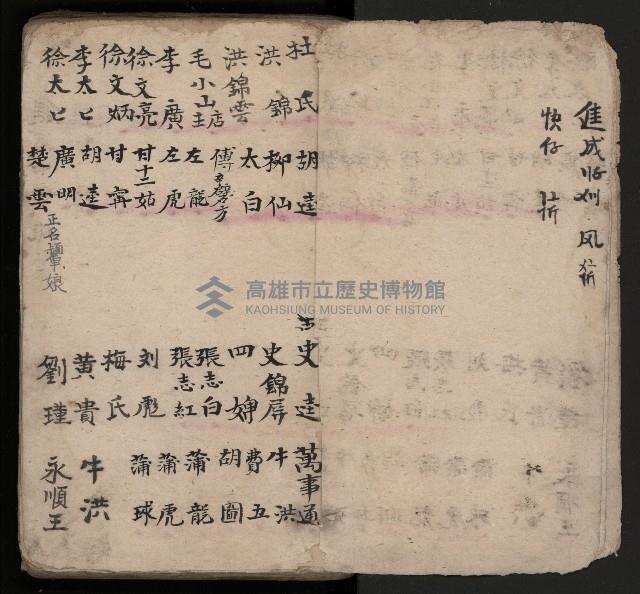 進成 凤
快仔
杜氏 胡逵
洪錦 柳仙
洪錦雲 太白
毛小山 店主 傅
李廣 左龍
徐文亮 左虎
徐文炳 甘十二姑
李太匕 甘寧
徐太匕 胡逵
廣明
楚雲 正名 娘
史逵 萬事通
史錦屏 牛洪
四婢 費五
張志白 胡圖
張志紅 蒲龍
刘彪 蒲虎
梅氏 蒲球
黃貴 牛洪
劉瑾 永順王
高雄市立歷史博物館
KAOHSIUNG MUSEUM OF HISTORY